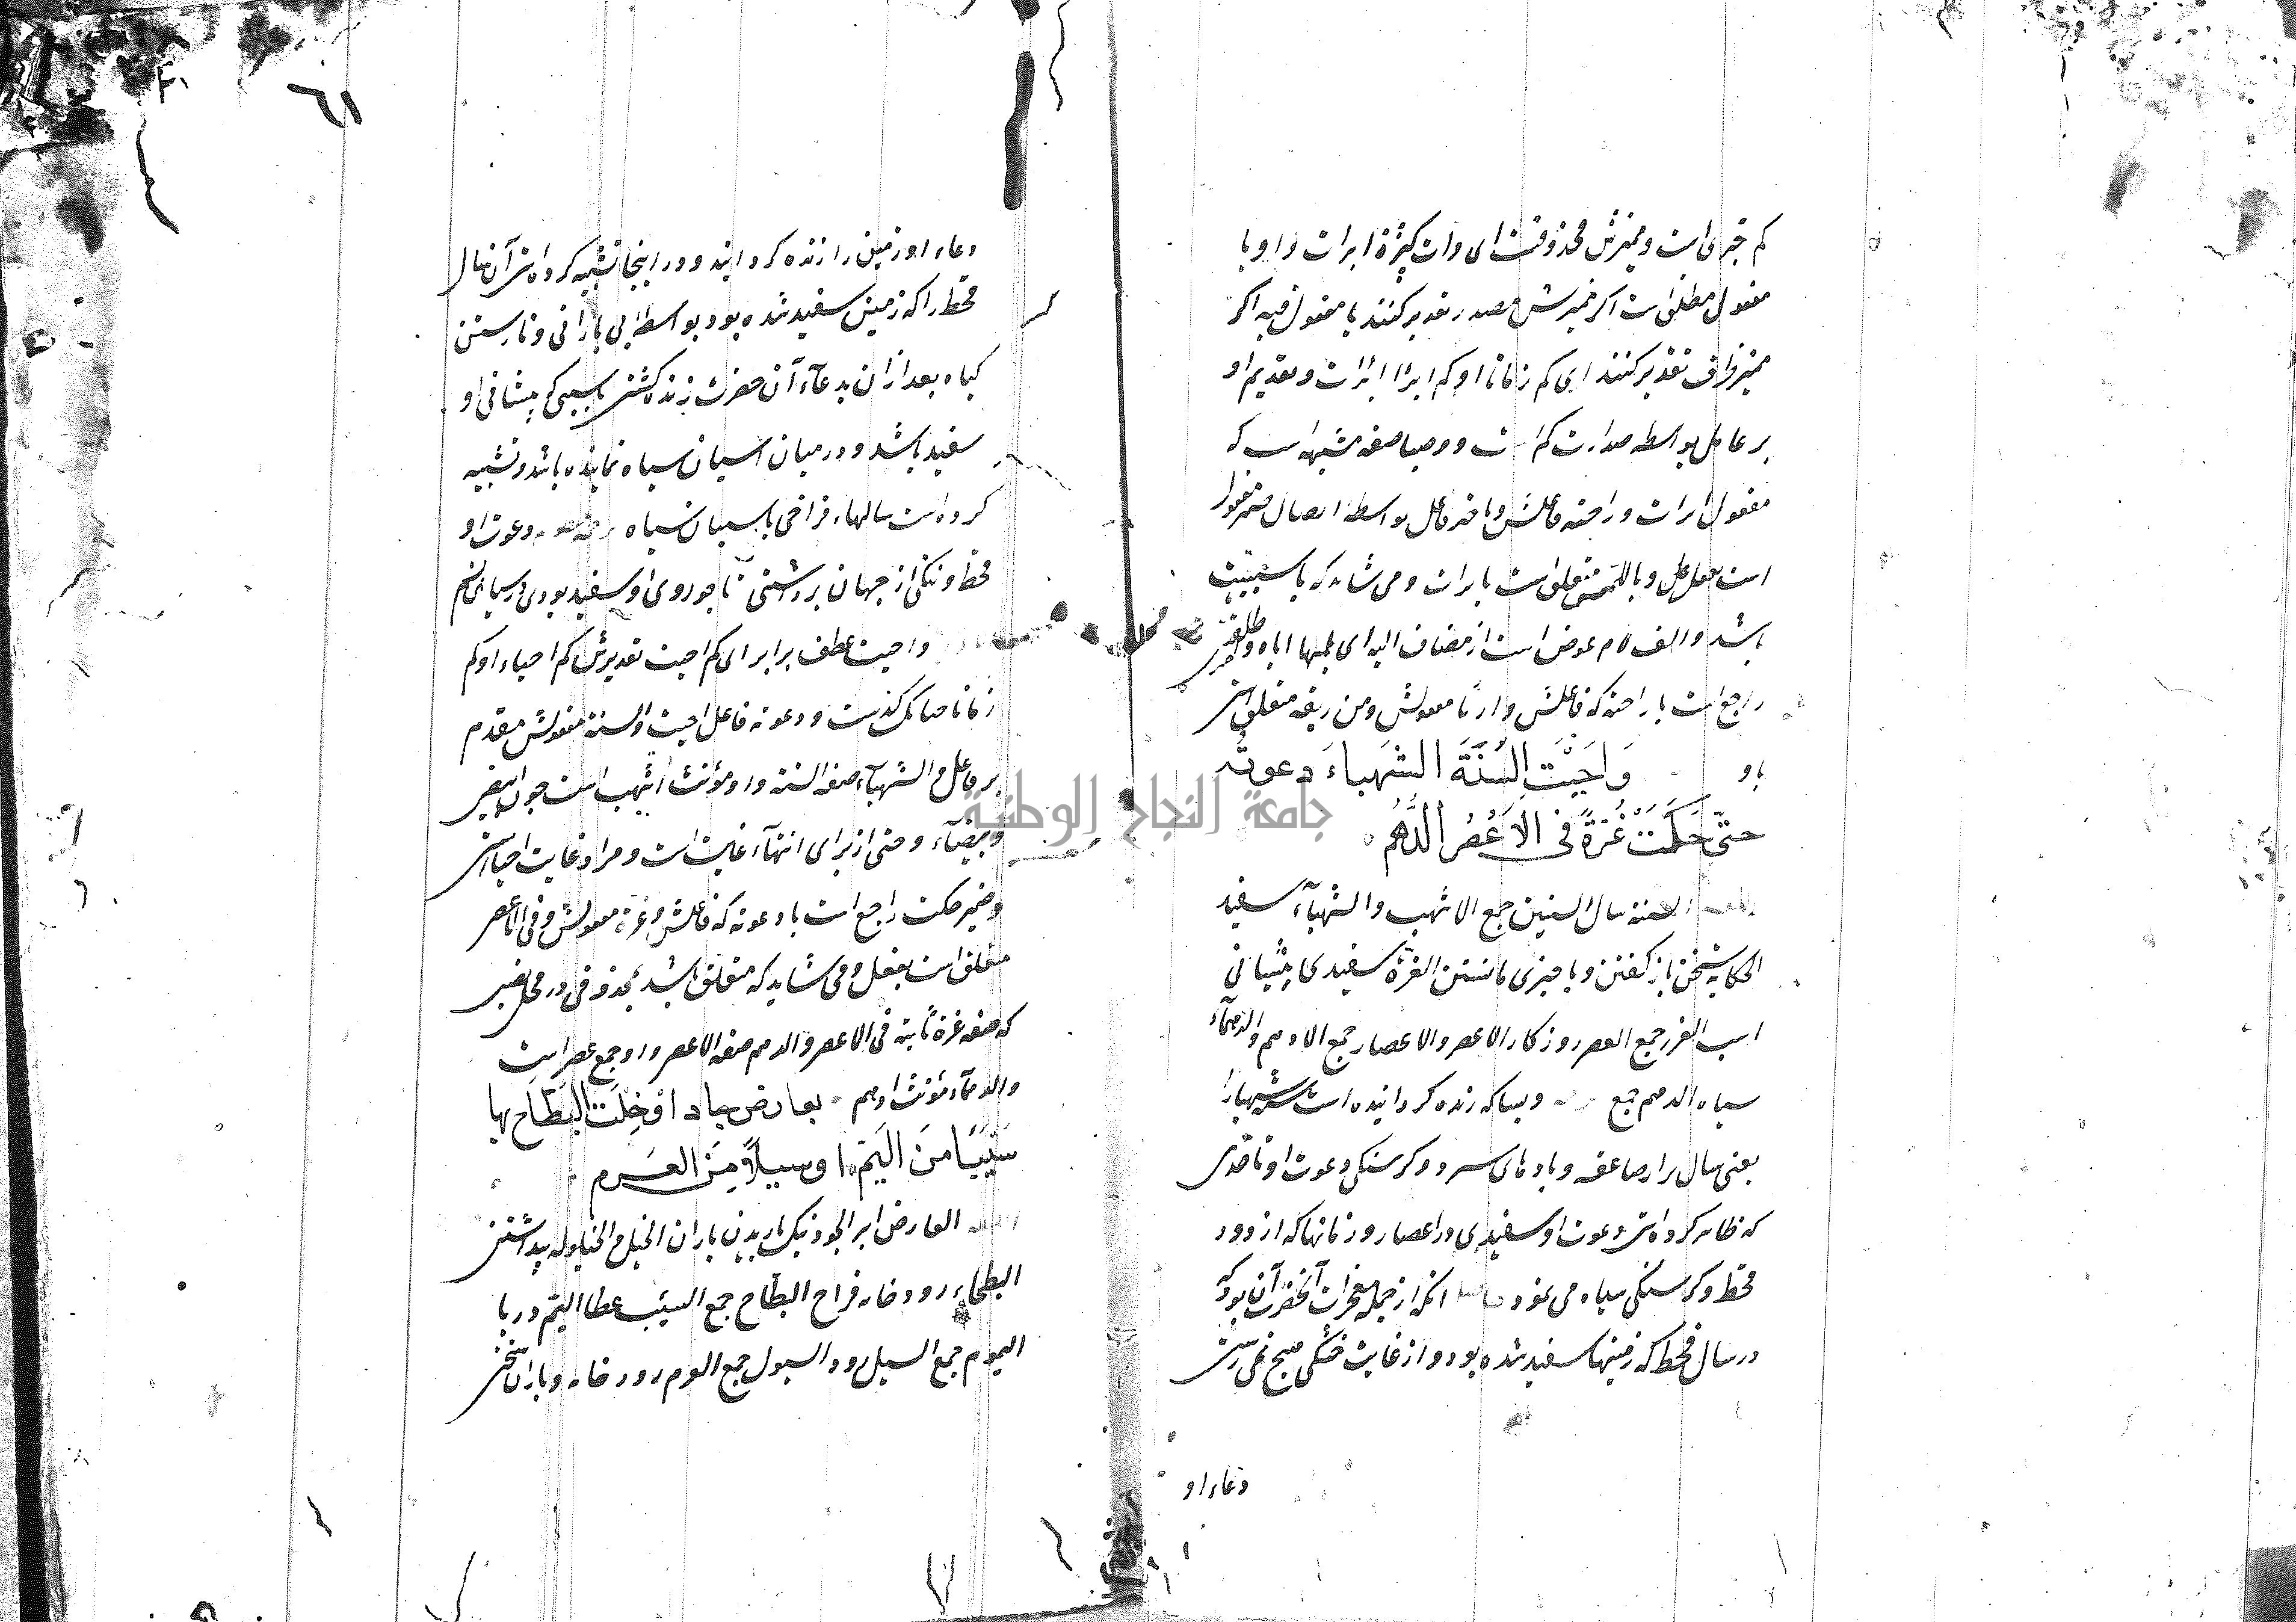 کم خبری است و ممیزش محذوفست ای وات کثیرة ابرات و او با
مفعول مطلق است اکر ممیزش مصدر تقدیر کنند یا مفعول فیه اکر
ممیز ظرف تقدیر کنند ای کم زمانا او کم ابراا ابرات و تقدیم او
بر عامل بواسطه صدارت کم است و وصبا صفه مشبهه است که
مفعول ابرات و راحته فاعلش و تاخیر فاعل بواسطه اتصال ضمیر مفعول
است بفعل و باللمس متعلق است بابرات و می شاید که با سببیت
باشد و الف لام عوض است از مضاف الیه ای بلمسها اباه و اطلقت
راجع است با راحته که فاعلش و اربا مفعولش و من ربقه متعلق است
باو وَاَحْيَتِ السَّنَةَ الشَهباءَ دعوتُه
حتّى حَكَتْ غُرَةً فى الاَعْصُرِ الدُّهُمِ
السنة سال السنین جمع الاشهب والشهباء سفید
الحکایة سخن باز کفتن و با چیزی مانستن الغرة سفیدی پیشانی
اسب الغرر جمع العصر روزکار الاعصر والاعصار جمع الادهم والدهماء
سیاه الدهم جمع و بسا که زنده کردانیده است سنه شهبارا
یعنی سال را صاعقه و بادهای سرد و کرسنکی دعوت او تا حدی
که ظاهر کرده است دعوت او سفیدی در اعصار و زمانها که از دود
قحط و کرسنکی سیاه می نمود انکه از جمله معجزات آنحضرت آن بود که
در سال قحط که زمینها سفید شده بود و از غایت خشکی هیچ نمی رست
دعاء او
٦١
دعاء او زمین را زنده کردانید و در اینجا تشبیه کرده است آن سال
قحط را که زمین سفید شده بود بواسطه بی بارانی و نارستن
کیاه بعد از ان بدعاء آن حضرت زنده کشتن باسبی که پیشانی او
سفید باشد و در میان اسبان سیاه نماینده باشد و تشبیه
کرده است سالهاء فراخی باسبان سیاه دعوت او
قحط و تنکی از جهان برداشتی تا جو روی او سفید بودی در سیاهی
واحیت عطف بر ابر ای کم احیت تقدیرش کم احیاء او کم
زمانا چنانک کذشت و دعوته فاعل احیت و السنة مفعولش مقدم
بر فاعل و الشهباء صفه السنة و او مؤنث اشهب است چون ابیض
و بیضاء و حتی از برای انتهاء غایت است و مراد غایت احیا است
و ضمیر حکت راجع است با دعوته که فاعلش و غرة مفعولش و فی الاعصر
متعلق است بفعل و می شاید که متعلق باشد بمحذوفی در محل نصب
که صفه غرة ثابتة فی الاعصر والدهم صفه الاعصر و او جمع عصر است
والدهماء مؤنث ادهم بعارض جاد او خِلْتَ البِطَاحَ بها
سَيْبًا مِنَ اليَمِّ او سيلاً مِنَ العَرِم
العارض ابر الجود نیک باریدن باران الخیل والخیلولة پنداشتن
البطحاء رودخانه فراخ البطاح جمع السیب عطا الیم دریا
الیموم جمع السیل رود السیول جمع العرم رودخانه و باران سخت
جامعة النجاح الوطنية